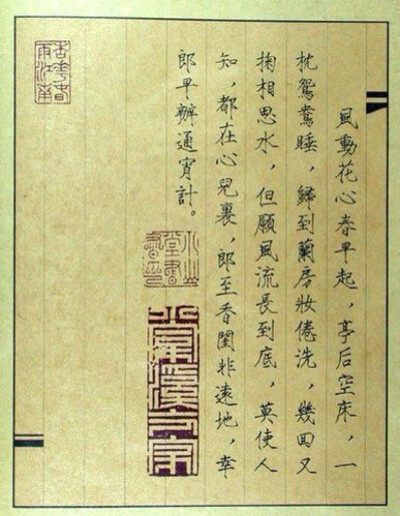 風動花心春早起，亭后空床，一
枕鴛鴦睡，歸到蘭房妝倦洗，幾回又
掬相思水，但願風流長到底，莫使人
知，都在心兒裏，郎至香閨非遠地，幸
郎早辦通宵計。
杏花春
雨江南